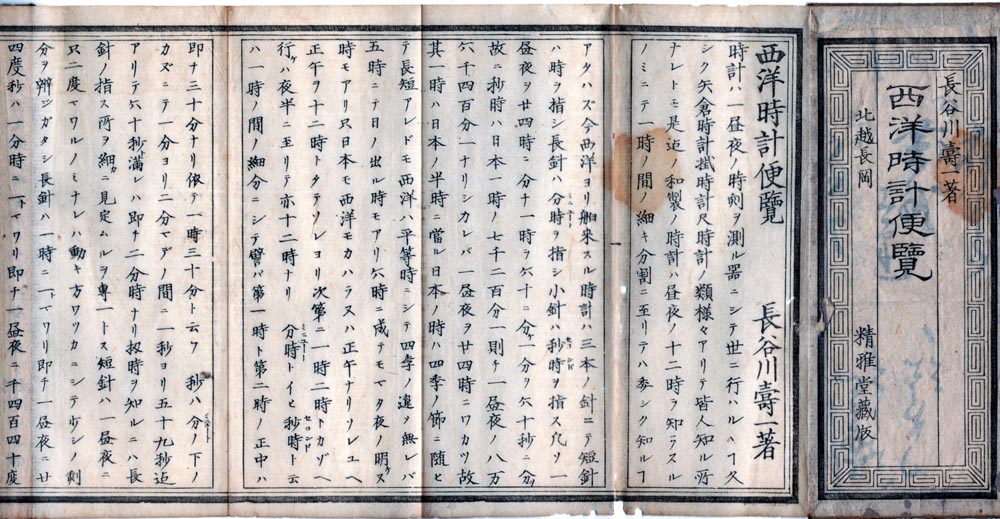 長谷川壽一著
西洋時計便覽
北越長岡　精雅堂藏版
西洋時計便覽　長谷川壽一著
時計ハ一昼夜ノ時刻ヲ測ル器ニシテ世ニ行ハルヽヿ久
シク矢倉時計掛時計尺時計ノ類様々アリテ皆人知ル所
ナレトモ是迠ノ和製ノ時計ハ昼夜ノ十二時ヲ知ラスル
ノミニテ一時ノ間ノ細キ分割ニ至リテハ委シク知ルヿ
アタハズ今西洋ヨリ舶来スル時計ハ三本ノ針ニテ短針
ハ時ヲ指シ長針ハ分時ヲ指シ小針ハ秒時ヲ指ス凡ソ一
昼夜ヲ廿四時ニ分チ一時ヲ六十ニ分一分ヲ六十秒ニ分
故ニ秒時ハ日本一時ノ七千二百分一則チ一昼夜ノ八万
六千四百分一ナリシカレバ一昼夜ヲ廿四時ニワカツ故
其一時ハ日本ノ半時ニ當ル日本ノ時ハ四季ノ節ニ随ヒ
テ長短アレドモ西洋ハ平等時ニシテ四季ノ違ヲ無レバ
五時ニテ日ノ出ル時モアリ六時ニ成テモマタ夜ノ明ヌ
時モアリ只日本モ西洋モカハラヌハ正午ナリソレユヘ
正午ヲ十二時トタテソレヨリ次第ニ一時二時トカゾヘ
行ケハ夜半ニ至リテ亦十二時ナリ　分時トイヒ秒時ト云
ハ一時ノ間ノ細分ニシテ譬バ第一時ト第二時ノ正中ハ
即チ三十分ナリ依テ一時三十分ト云フ　秒ハ分ノ下ノ
カズニテ一分ヨリ二分マデノ間ニ一秒ヨリ五十九秒迠
アリテ六十秒満レハ即チ二分時ナリ扨時ヲ知ルニハ長
針ノ指ス所ヲ細カニ見定ムルヲ專一トス短針ハ一昼夜ニ
只二度マワルノミナレハ動キ方ワツカニシテ少シノ刻
分ヲ辨シガタシ長針ハ一時ニ一トマワリ即チ一昼夜ニ廿
四度秒ハ一分時ニ一トマワリ即チ一昼夜ニ千四百四十度